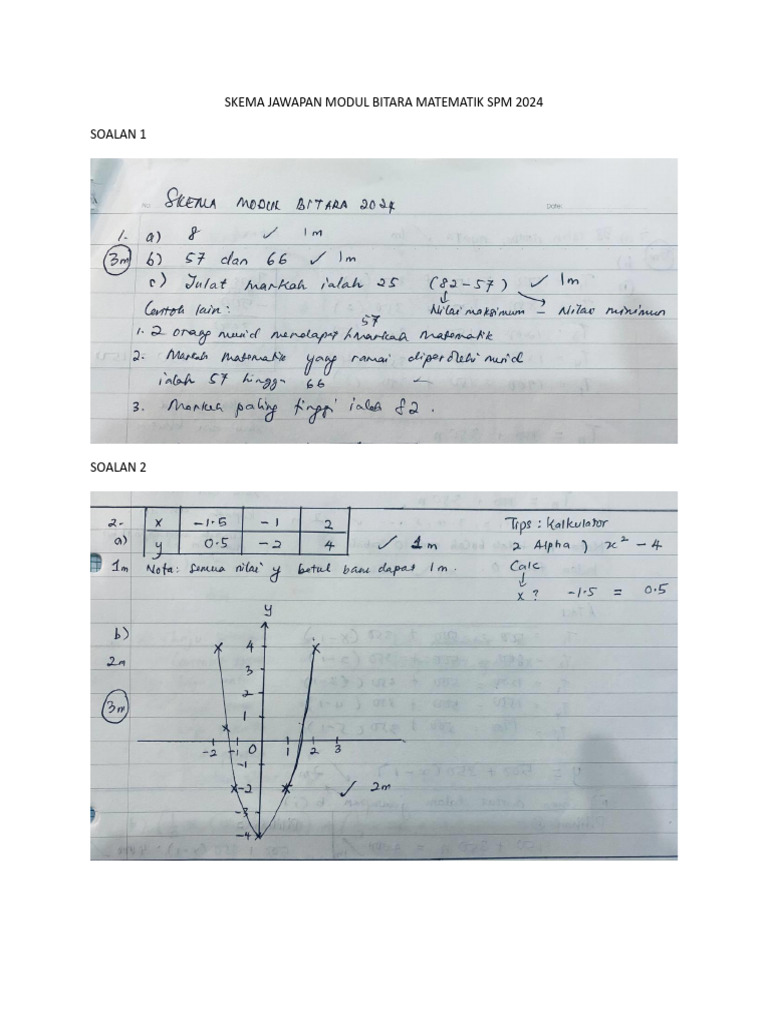 SKEMA JAWAPAN MODUL BITARA MATEMATIK SPM 2024
SOALAN 1
No.
SKEMA MODUL BITARA 2024 Date:
1. a) 8 ✓ 1m
3m b) 57 dan 66 ✓ 1m
c) Julat markah ialah 25 (82-57) ✓ 1m
Contoh lain: ↓ Nilai maksimum - Nilai minimum
57
1. 2 orang murid mendapat markah Matematik
2. Markah matematik yang ramai diperolehi murid
ialah 57 hingga 66
3. Markah paling tinggi ialah 82.
SOALAN 2
2. x -1.5 -1 2 Tips: Kalkulator
a) y 0.5 -2 4 ✓ 1m 2 Alpha ) x² - 4
1m Nota: Semua nilai y betul baru dapat 1m. Calc
↓
x? -1.5 = 0.5
y
b) 4
2m 3
2
3m 1
-2 -1 0 1 2 3
-1
-2 ✓ 2m
-3
-4